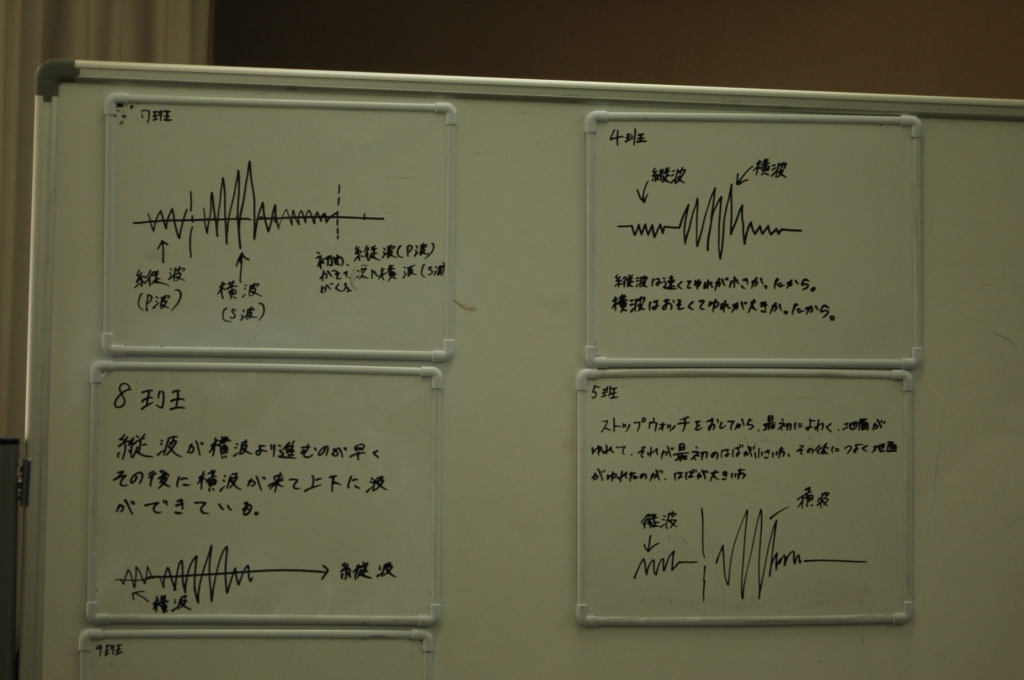 7班
縦波
(P波)
横波
(S波)
初め、縦波(P波)
がきて、次に横波(S波)
がくる
4班
縦波
横波
縦波は速くてゆれが小さかったから。
横波はおそくてゆれが大きかったから。
8班
縦波が横波より進むのが早く
その後に横波が来て上下に波
ができている。
縦波
横波
5班
ストップウォッチをおしてから、最初によわく、地面が
ゆれて、それが最初のはばが小さい方、その後につよく地面
がゆれたのが、はばが大きい方
縦波
横波
9班